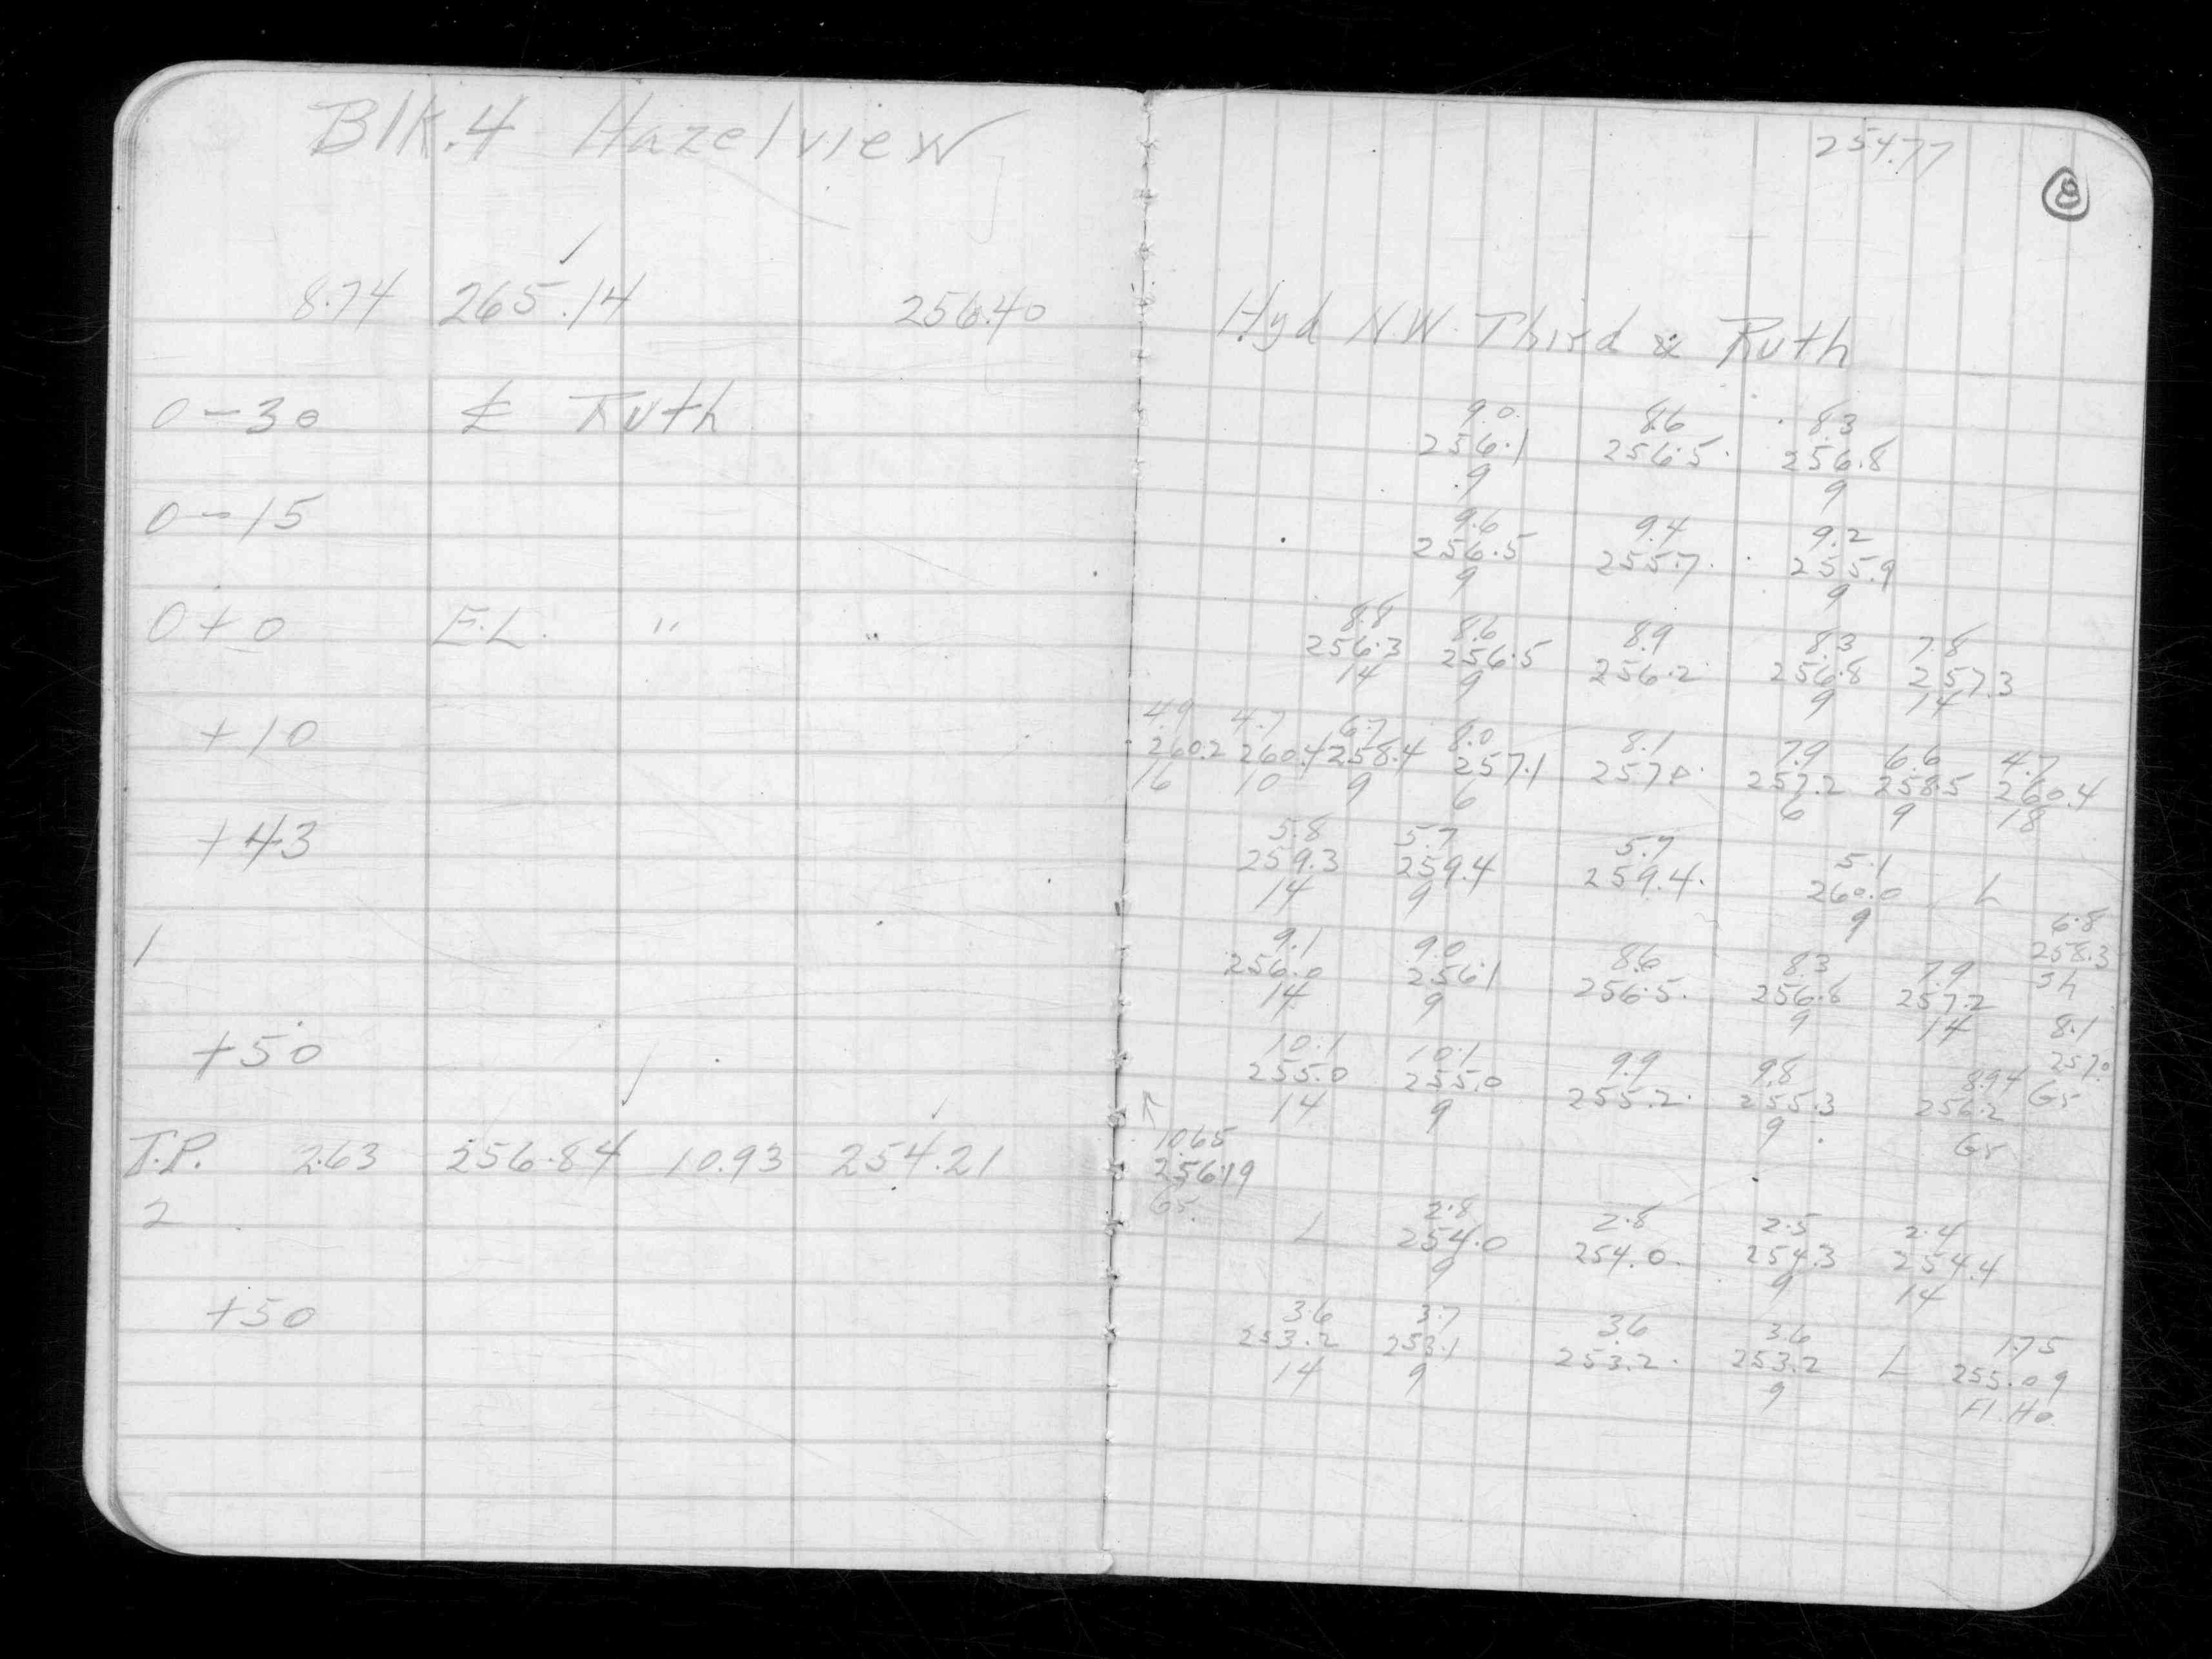 Blk.4 Hazelview
8.74 265.14 256.40
0-30 ℄ Ruth
0-15
0+0 E.L. " "
+10
+43
1
+50
T.P. 2.63 256.84 10.93 254.21
2
+50
254.77
8
Hyd NW. Third & Ruth
9.0 8.6 8.3
256.1 256.5 256.8
9 9
9.6 9.4 9.2
256.5 255.7 255.9
9 9
8.8 8.6 8.9 8.3 7.8
256.3 256.5 256.2 256.8 257.3
14 9 9 14
4.9 4.7 6.7 8.0 8.1 7.9 6.6 4.7
260.2 260.4 258.4 257.1 257.0 257.2 258.5 260.4
16 10 9 6 6 9 18
5.8 5.7 5.7 5.1
259.3 259.4 259.4 260.0 L
14 9 9
9.1 9.0 8.6 8.3 7.9 6.8
256.0 256.1 256.5 256.8 257.2 258.3
14 9 9 14
10.1 10.1 9.9 9.8 8.94 8.1
255.0 255.0 255.2 255.3 256.2 257.0
14 9 9 Gr Gr
10.65
256.19
Gr.
2.8 2.8 2.5 2.4
L 254.0 254.0 254.3 254.4
9 9 14
3.6 3.7 3.6 3.6 1.75
253.2 253.1 253.2 253.2 L 255.09
14 9 9 Fl. Ho.